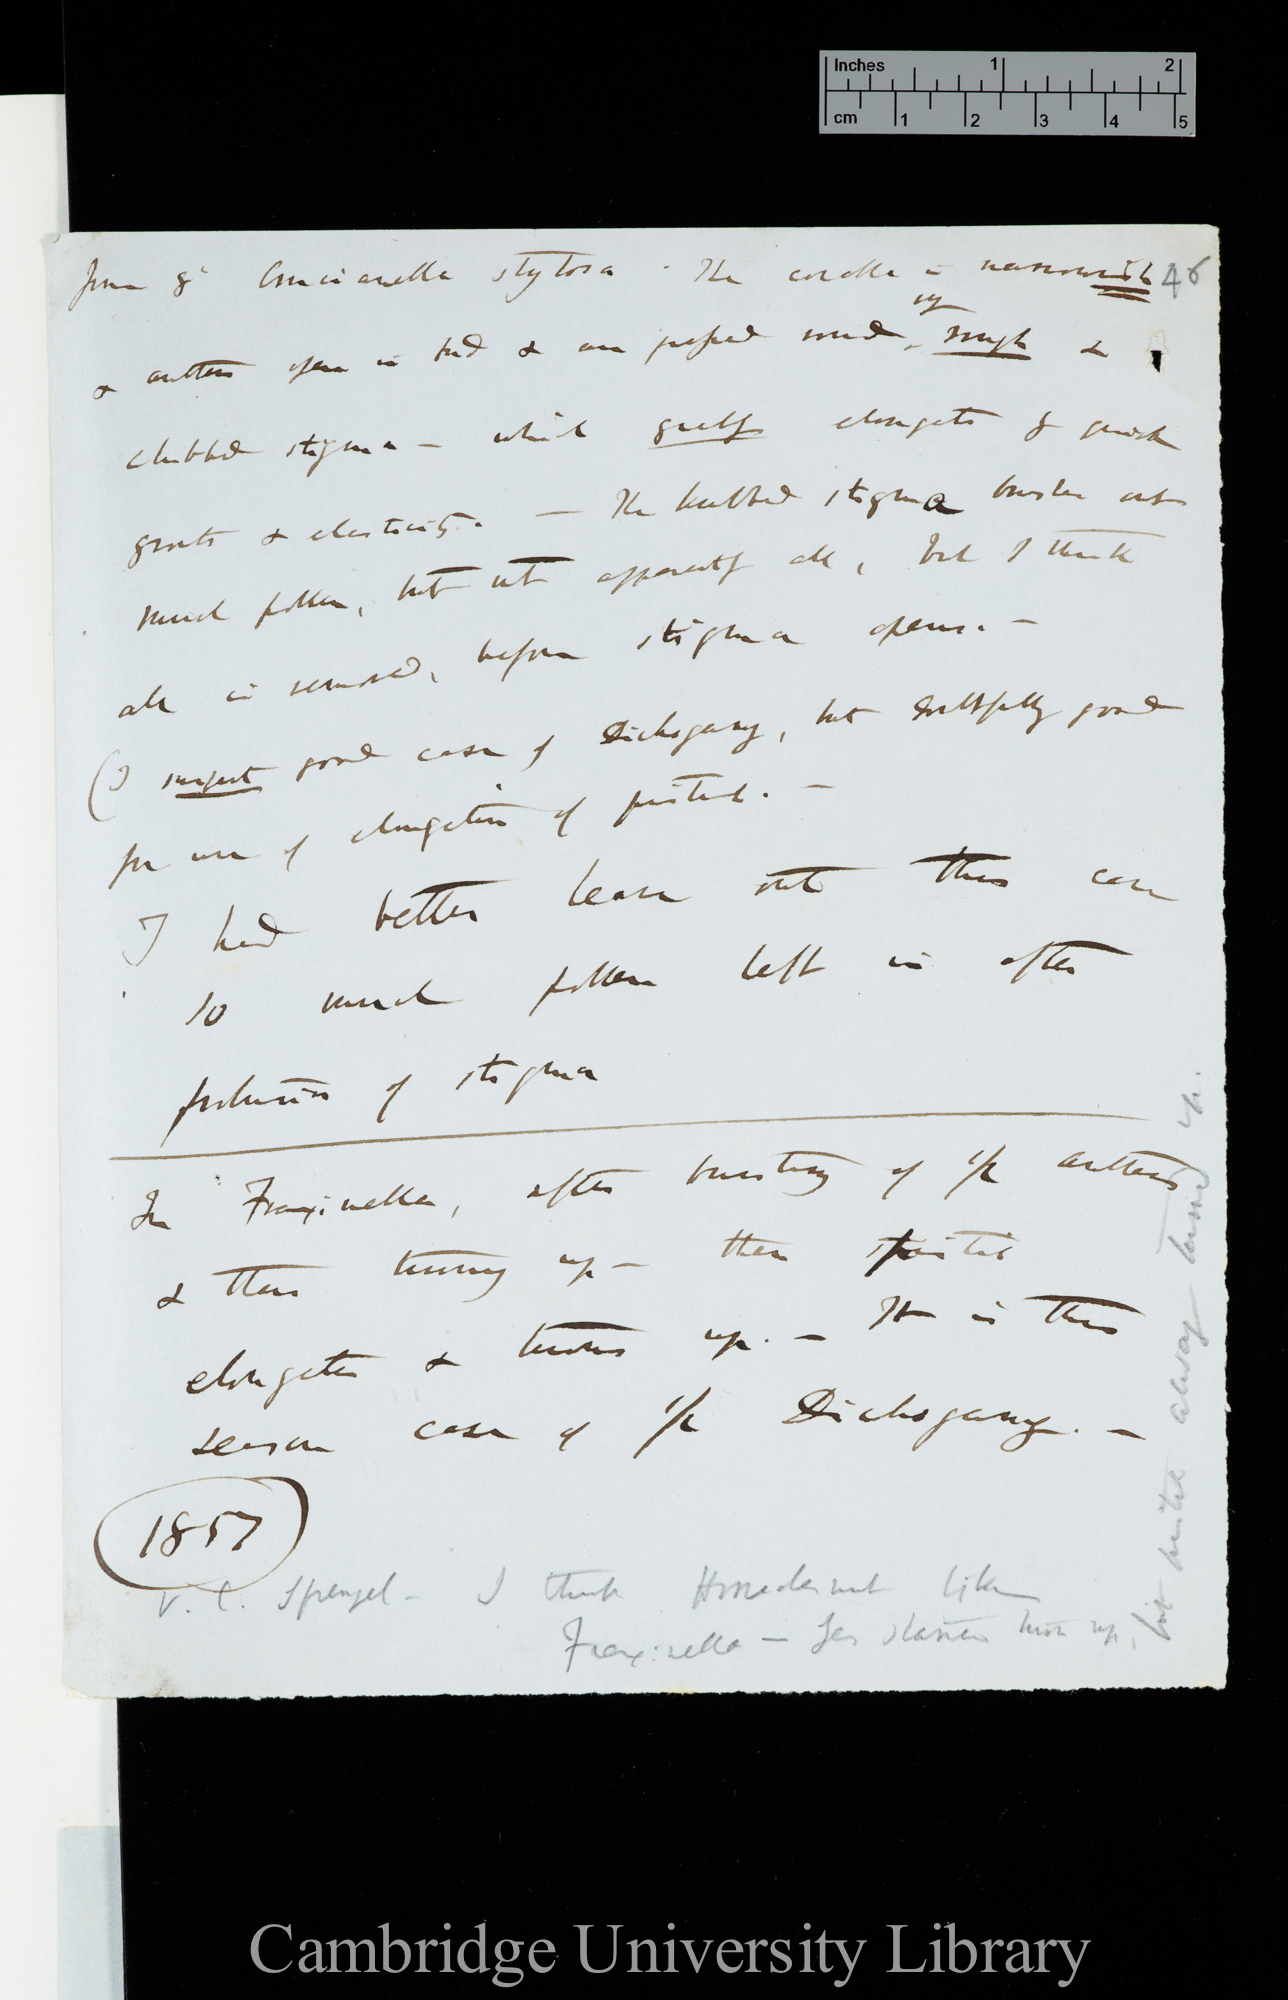 Inches 1 2
cm 1 2 3 4 5
46
June 8th Crucianella stylosa. The corolla is narrowish
& anthers open in bud & are pressed round, by rough &
clubbed stigma — which greatly elongates by quick
growth & elasticity. — The clubbed stigma brushes out
much pollen, but not apparently all, but I think
all is removed, before stigma opens. —
(I suspect good case of Dichogamy, but doubtfully good
for use of elongation of pistil. —
I had better leave out this case
so much pollen left in after
protrusion of stigma
In Fraxinella, after bursting of the anthers
& their turning up — then pistil
elongates & turns up. — It is this
season case of the Dichogamy. —
1857
V. C. Sprengel — I think Horsechesnut like
Fraxinella — Yes stamens turn up,
but pistil always turned up.
Cambridge University Library